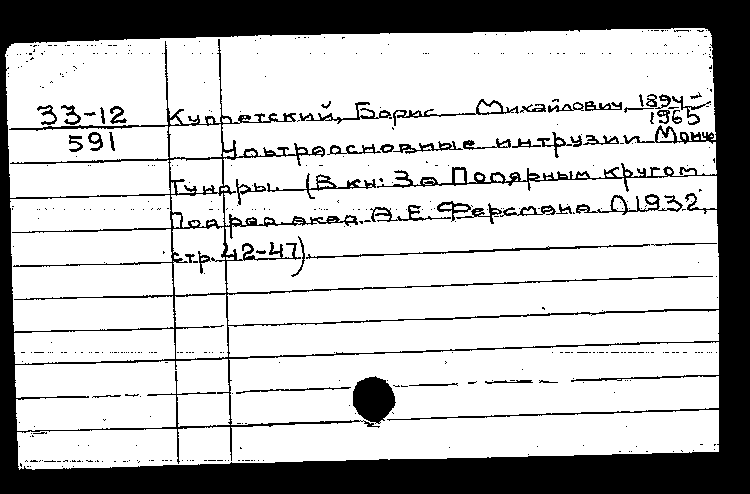 33-12 Куплетский, Борис Михайлович, 1894-
591 1965
Ультраосновные интрузии Монче
Тундры. (В кн: За Полярным кругом.
Под ред. акад. А.Е. Ферсмана. Л 1932,
стр. 42-47).